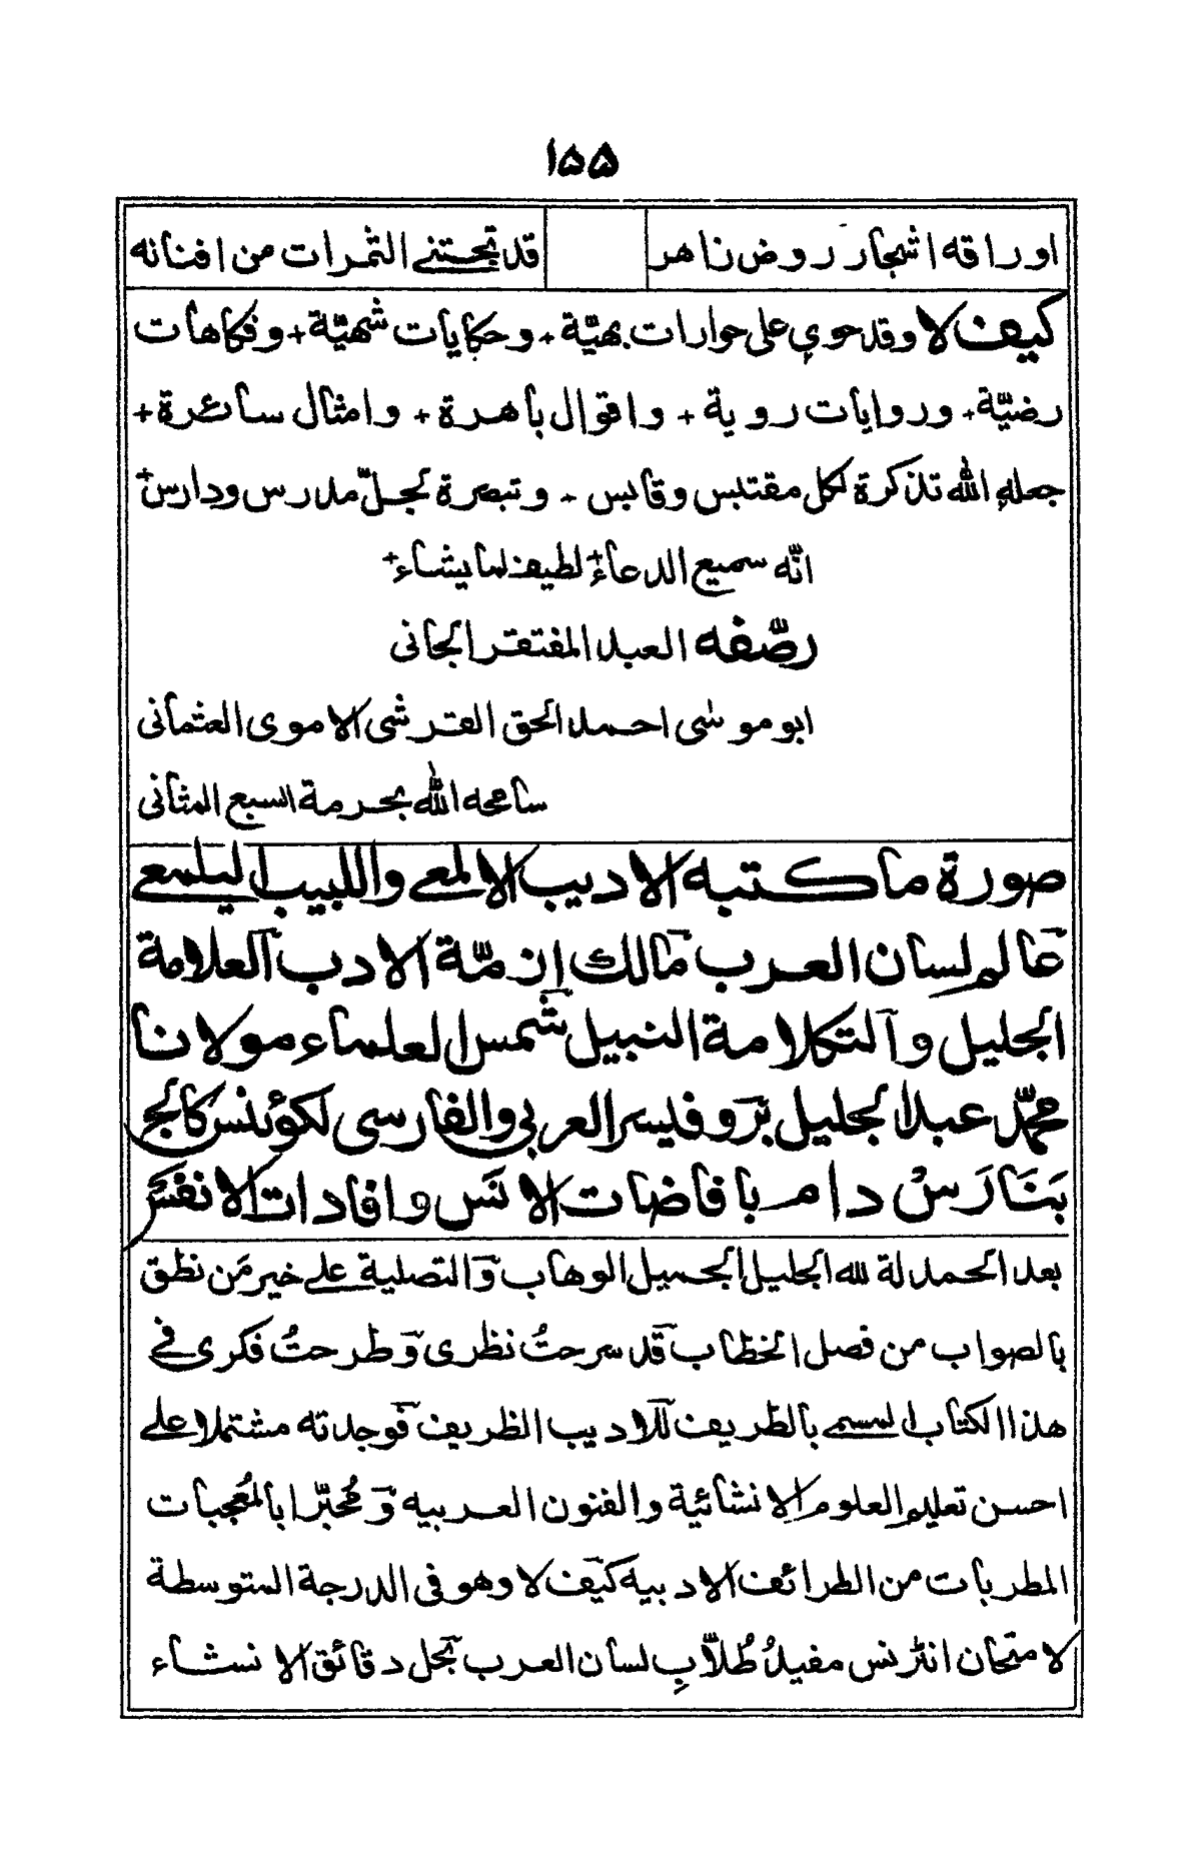 ۱۵۵
اوراقه اشجار روض زاهر    قد تجتنے الثمرات من افنانه
کیف لا وقد حوی علی حوارات بهیّة + وحکایات شهیّة + وفکاهات
رضیّة + وروایات رویة + واقوال باهرة + وامثال سائرة +
جعله الله تذکرة لکل مقتبس وقابس - وتبصرة لجلّ مدرس ودارس +
انّه سمیع الدعاء + لطیف لما یشاء +
رصّفه العبد المفتقر الجانی
ابو موسٰی احمد الحق القرشی الاموی العثمانی
سامحه الله بحرمة السبع المثانی
صورة ما کتبه الادیب الالمعے واللبیب الیلمعے
عالم لسان العرب مالك ازمّة الادب العلامة
الجلیل والتکلامة النبیل شمس العلماء مولانا
محمّد عبد الجلیل پروفیسر العربی والفارسی لکوئنس کالج
بَنَارَسْ دام بافاضات الانَس وافادات الانفَس
بعد الحمدلة لله الجلیل الجمیل الوهاب وَالتصلیة علے خیر مَن نطق
بالصواب من فصل الخطاب قد سرحتُ نظری وَطرحتُ فکری فے
هذا الکتاب المسمے بالطریف للادیب الظریف فوجدته مشتملا علے
احسن تعلیم العلوم الانشائیة والفنون العربیه وَمُحبّرا بالمُعجبات
المطربات من الطرائف الادبیه کیف لا وهو فی الدرجة المتوسطة
لامتحان انٹرنس مفیدُ طُلّابِ لسان العرب بحل دقائق الانشاء